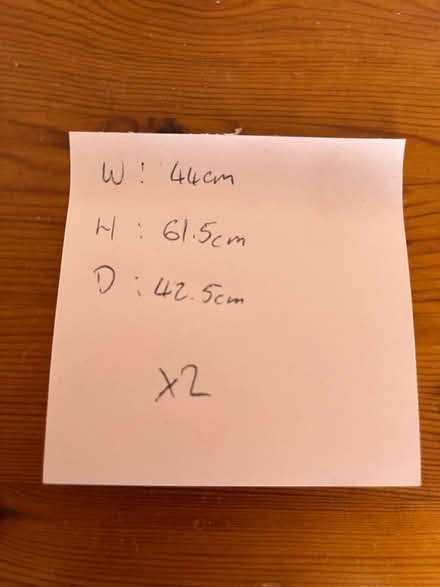 W: 44cm
H: 61.5cm
D: 42.5cm
x2